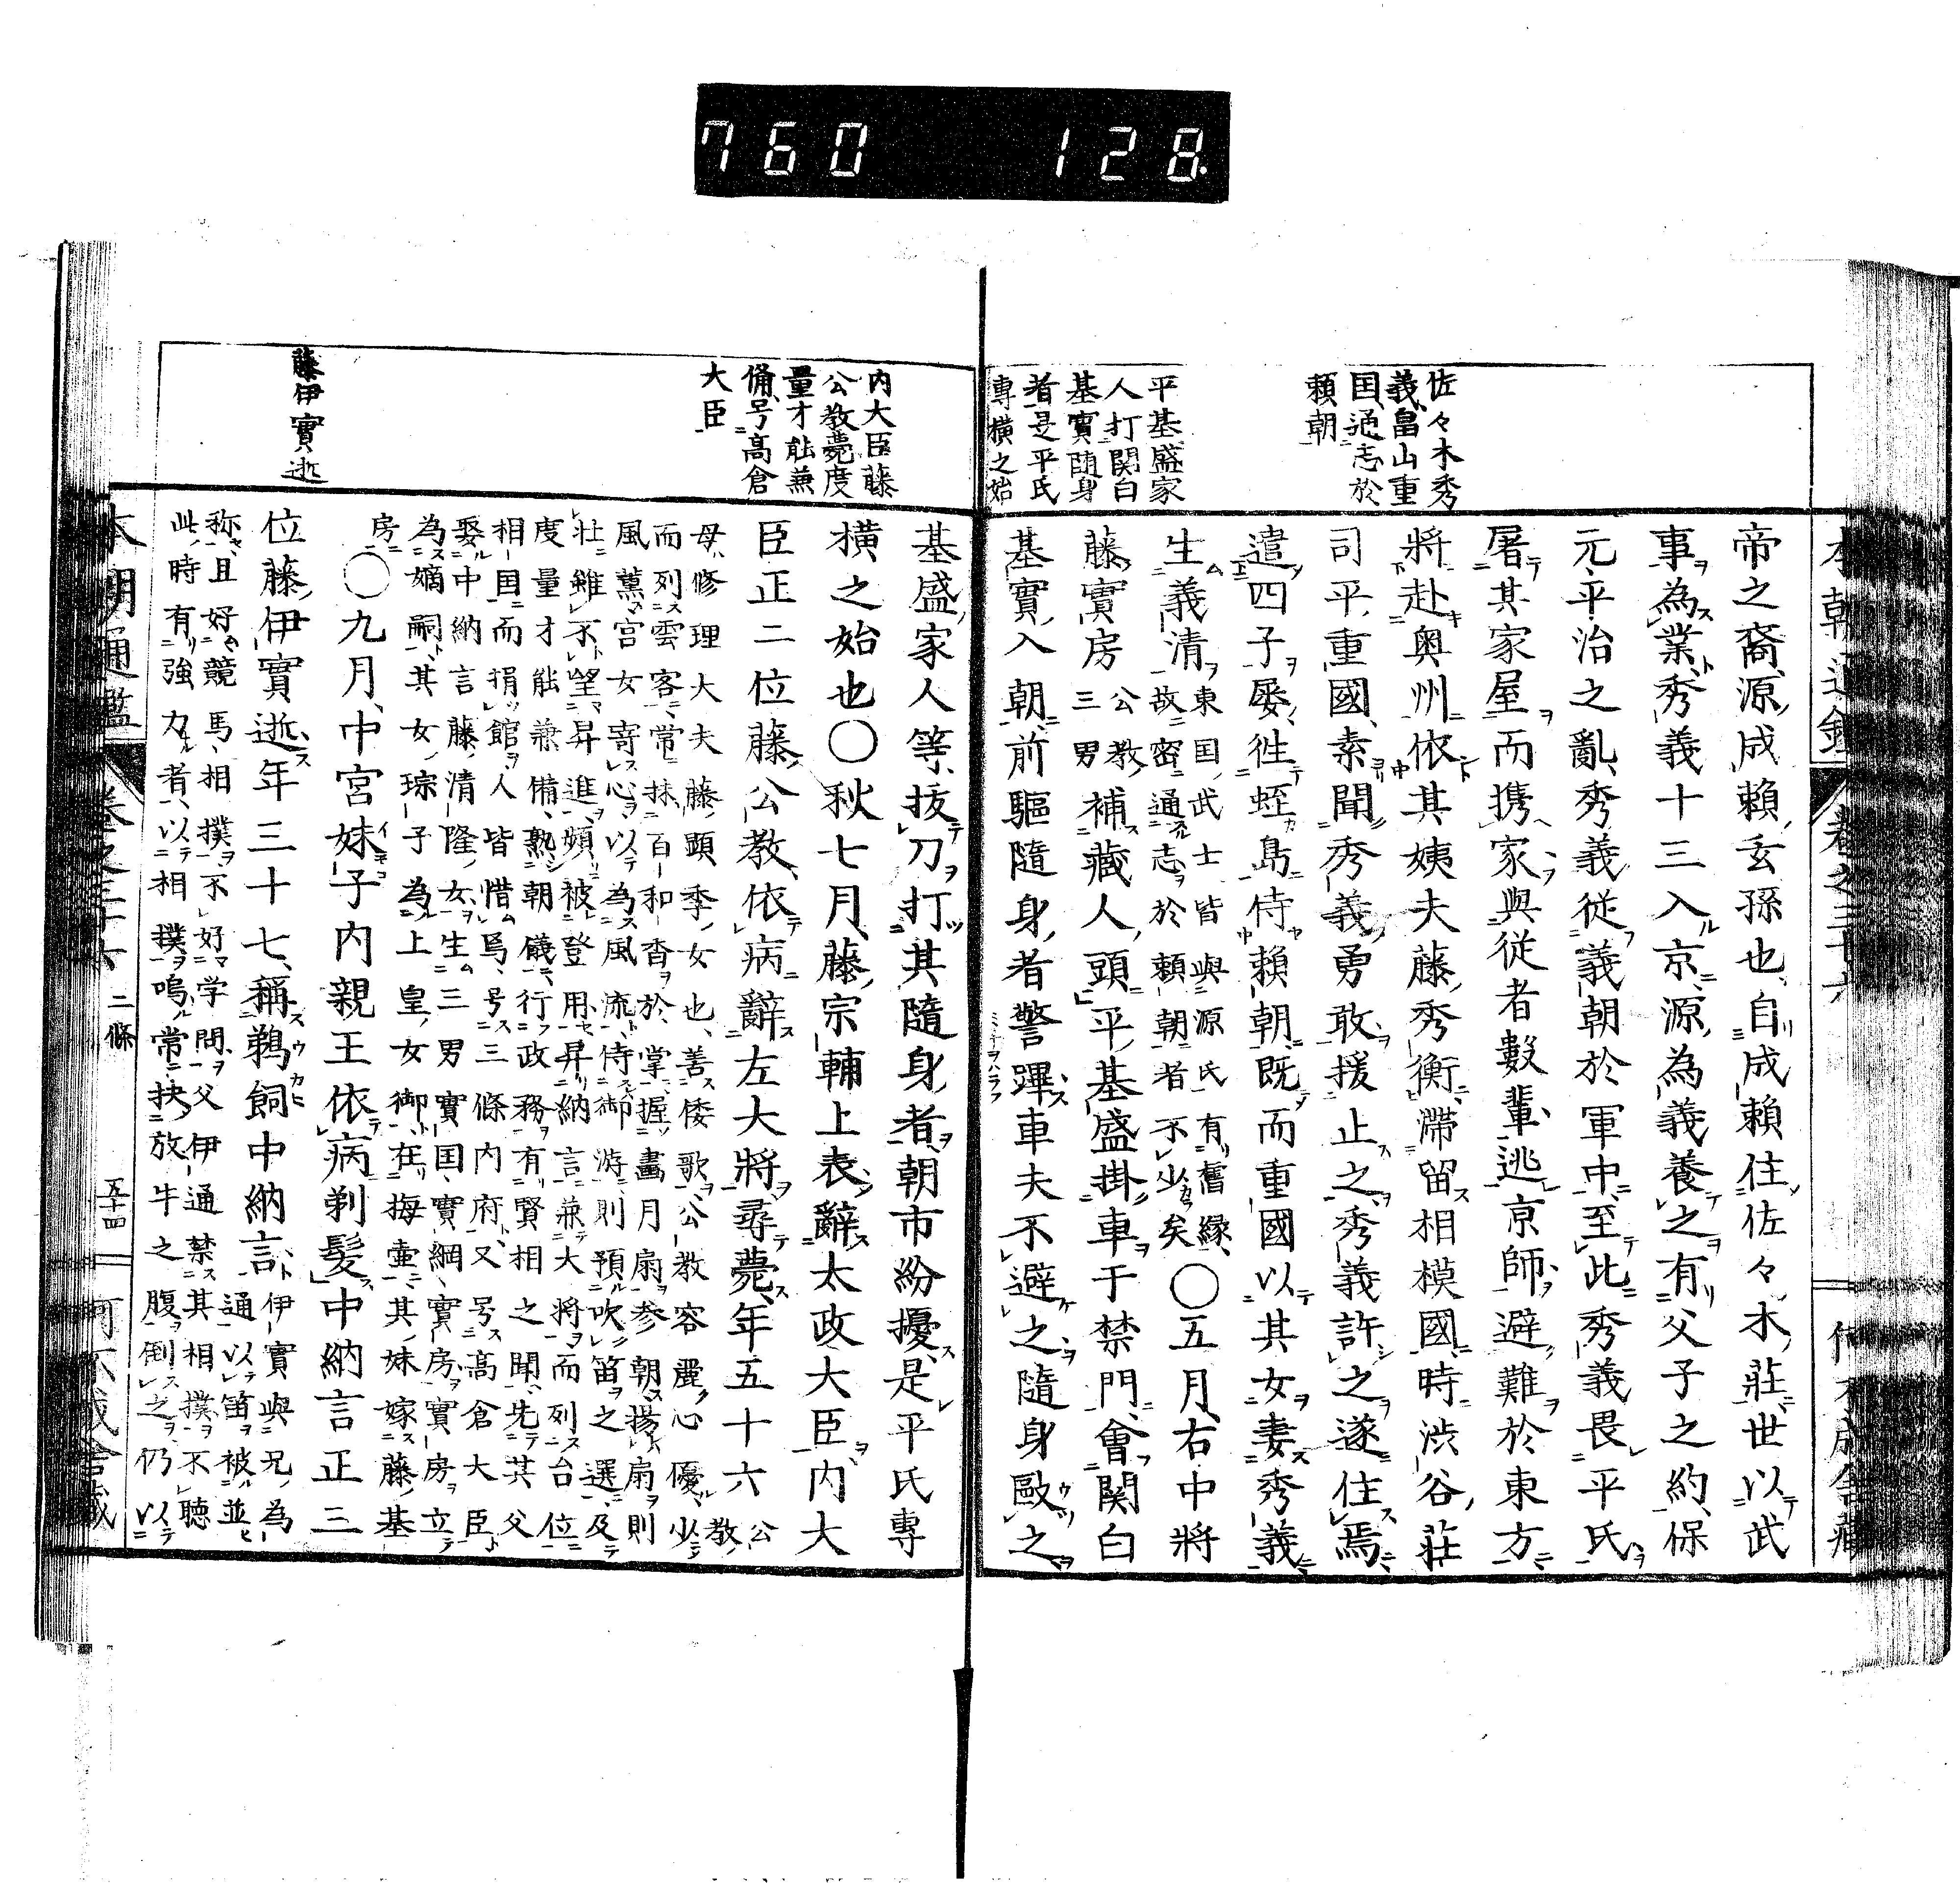 760 128
佐々木秀
義畠山重
国通志於
頼朝
平基盛家
人打関白
基實随身
者是平氏
專横之始
帝之裔源成賴玄孫也自成賴住佐々木莊世以武
事為業秀義十三入京源為義養之有父子之約保
元平治之亂秀義從義朝於軍中至此秀義畏平氏
屠其家屋而携家與從者數輩逃京師避難於東方
將赴奥州依其姨夫藤秀衡滯留相模國時渋谷莊
司平重國素聞秀義勇敢援止之秀義許之遂住焉
遣四子屡徃蛭島侍賴朝既而重國以其女妻秀義
生義清
東国武士皆與源氏有舊縁
故密通志於頼朝者不少矣
〇五月右中將
藤實房
公教
三男
補藏人頭平基盛掛車于禁門會関白
基實入朝前驅隨身者警蹕車夫不避之隨身毆之
内大臣藤
公教薨度
量才能兼
備号高倉
大臣
藤伊實逝
基盛家人等抜刀打其隨身者朝市紛擾是平氏專
横之始也〇秋七月藤宗輔上表辭太政大臣内大
臣正二位藤公教依病辭左大將尋薨年五十六
公教
母修理大夫藤顕季女也善倭歌公教容麗心優少
而列雲客常抹百和香於掌握畵月扇参朝揚扇則
風薫宮女寄心以為風流侍御游則預吹笛之選及
壮雖不望昇進頻被登用昇納言兼大将而列台位
度量才能兼備熟朝儀行政務有賢相之聞先其父
相国而捐館人皆惜焉号三條内府又号高倉大臣
娶中納言藤清隆女生三男實国實綱實房實房立
為嫡嗣其女琮子為上皇女御在梅壷其妹嫁藤基
房
〇九月中宮妹子内親王依病剃髪中納言正三
位藤伊實逝年三十七稱鵜飼中納言
伊實與兄為
通以笛被並
称且好競馬相撲不好学問父伊通禁其相撲不聴
此時有強力者以相撲鳴常抉放牛之腹倒之仍以
二條
五十四